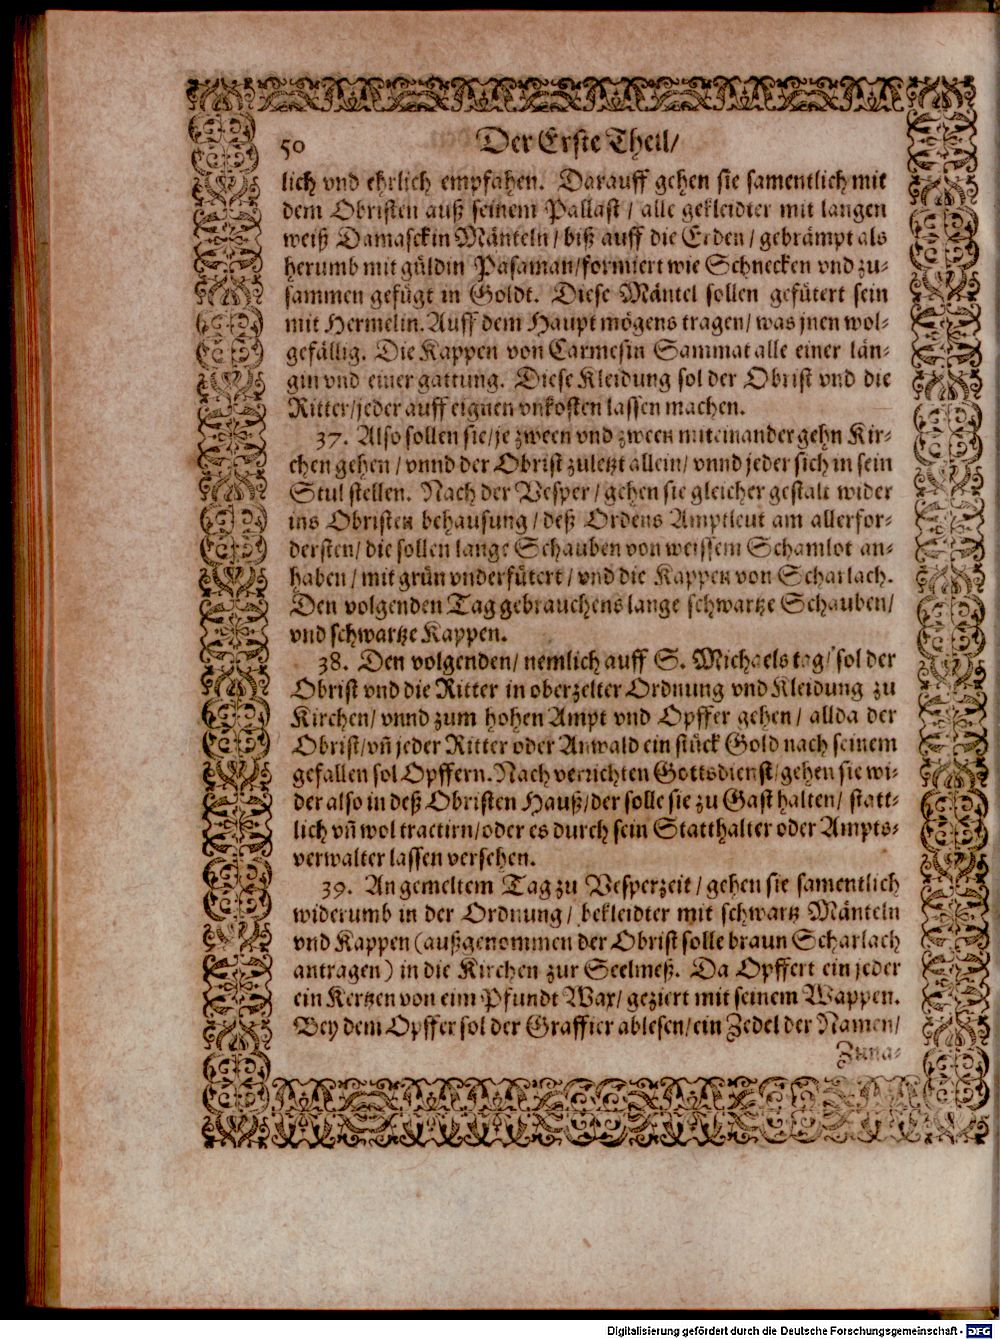 50 Der Erste Theil/
lich vnd ehrlich empfahen. Darauff gehen sie samentlich mit
dem Obristen auß seinem Pallast / alle gekleidter mit langen
weiß Damasckin Mänteln / biß auff die Erden / gebrämpt als
herumb mit güldin Pasaman/formiert wie Schnecken vnd zu-
sammen gefügt in Goldt. Diese Mäntel sollen gefütert sein
mit Hermelin. Auff dem Haupt mögens tragen/ was jnen wol-
gefällig. Die Kappen von Carmesin Sammat alle einer län-
gin vnd einer gattung. Diese Kleidung sol der Obrist vnd die
Ritter/jeder auff eignen vnkosten lassen machen.
37. Also sollen sie/je zween vnd zween miteinander gehn Kir-
chen gehen / vnnd der Obrist zuletzt allein/ vnnd jeder sich in sein
Stul stellen. Nach der Vesper / gehen sie gleicher gestalt wider
ins Obristen behausung / deß Ordens Amptleut am allerfor-
dersten/ die sollen lange Schauben von weissem Schamlot an-
haben / mit grün vnderfütert / vnd die Kappen von Scharlach.
Den volgenden Tag gebrauchens lange schwartze Schauben/
vnd schwartze Kappen.
38. Den volgenden/ nemlich auff S. Michaels tag/ sol der
Obrist vnd die Ritter in oberzelter Ordnung vnd Kleidung zu
Kirchen/ vnnd zum hohen Ampt vnd Opffer gehen / allda der
Obrist/vñ jeder Ritter oder Anwald ein stück Gold nach seinem
gefallen sol Opffern. Nach verrichten Gottsdienst/gehen sie wi-
der also in deß Obristen Hauß/der solle sie zu Gast halten/ statt-
lich vñ wol tractirn/oder es durch sein Statthalter oder Ampts-
verwalter lassen versehen.
39. An gemeltem Tag zu Vesperzeit / gehen sie samentlich
widerumb in der Ordnung / bekleidter mit schwartz Mänteln
vnd Kappen (außgenommen der Obrist solle braun Scharlach
antragen) in die Kirchen zur Seelmeß. Da Opffert ein jeder
ein Kertzen von eim Pfundt Wax/ geziert mit seinem Wappen.
Bey dem Opffer sol der Graffier ablesen/ein Zedel der Namen/
Zuna-
Digitalisierung gefördert durch die Deutsche Forschungsgemeinschaft - DFG